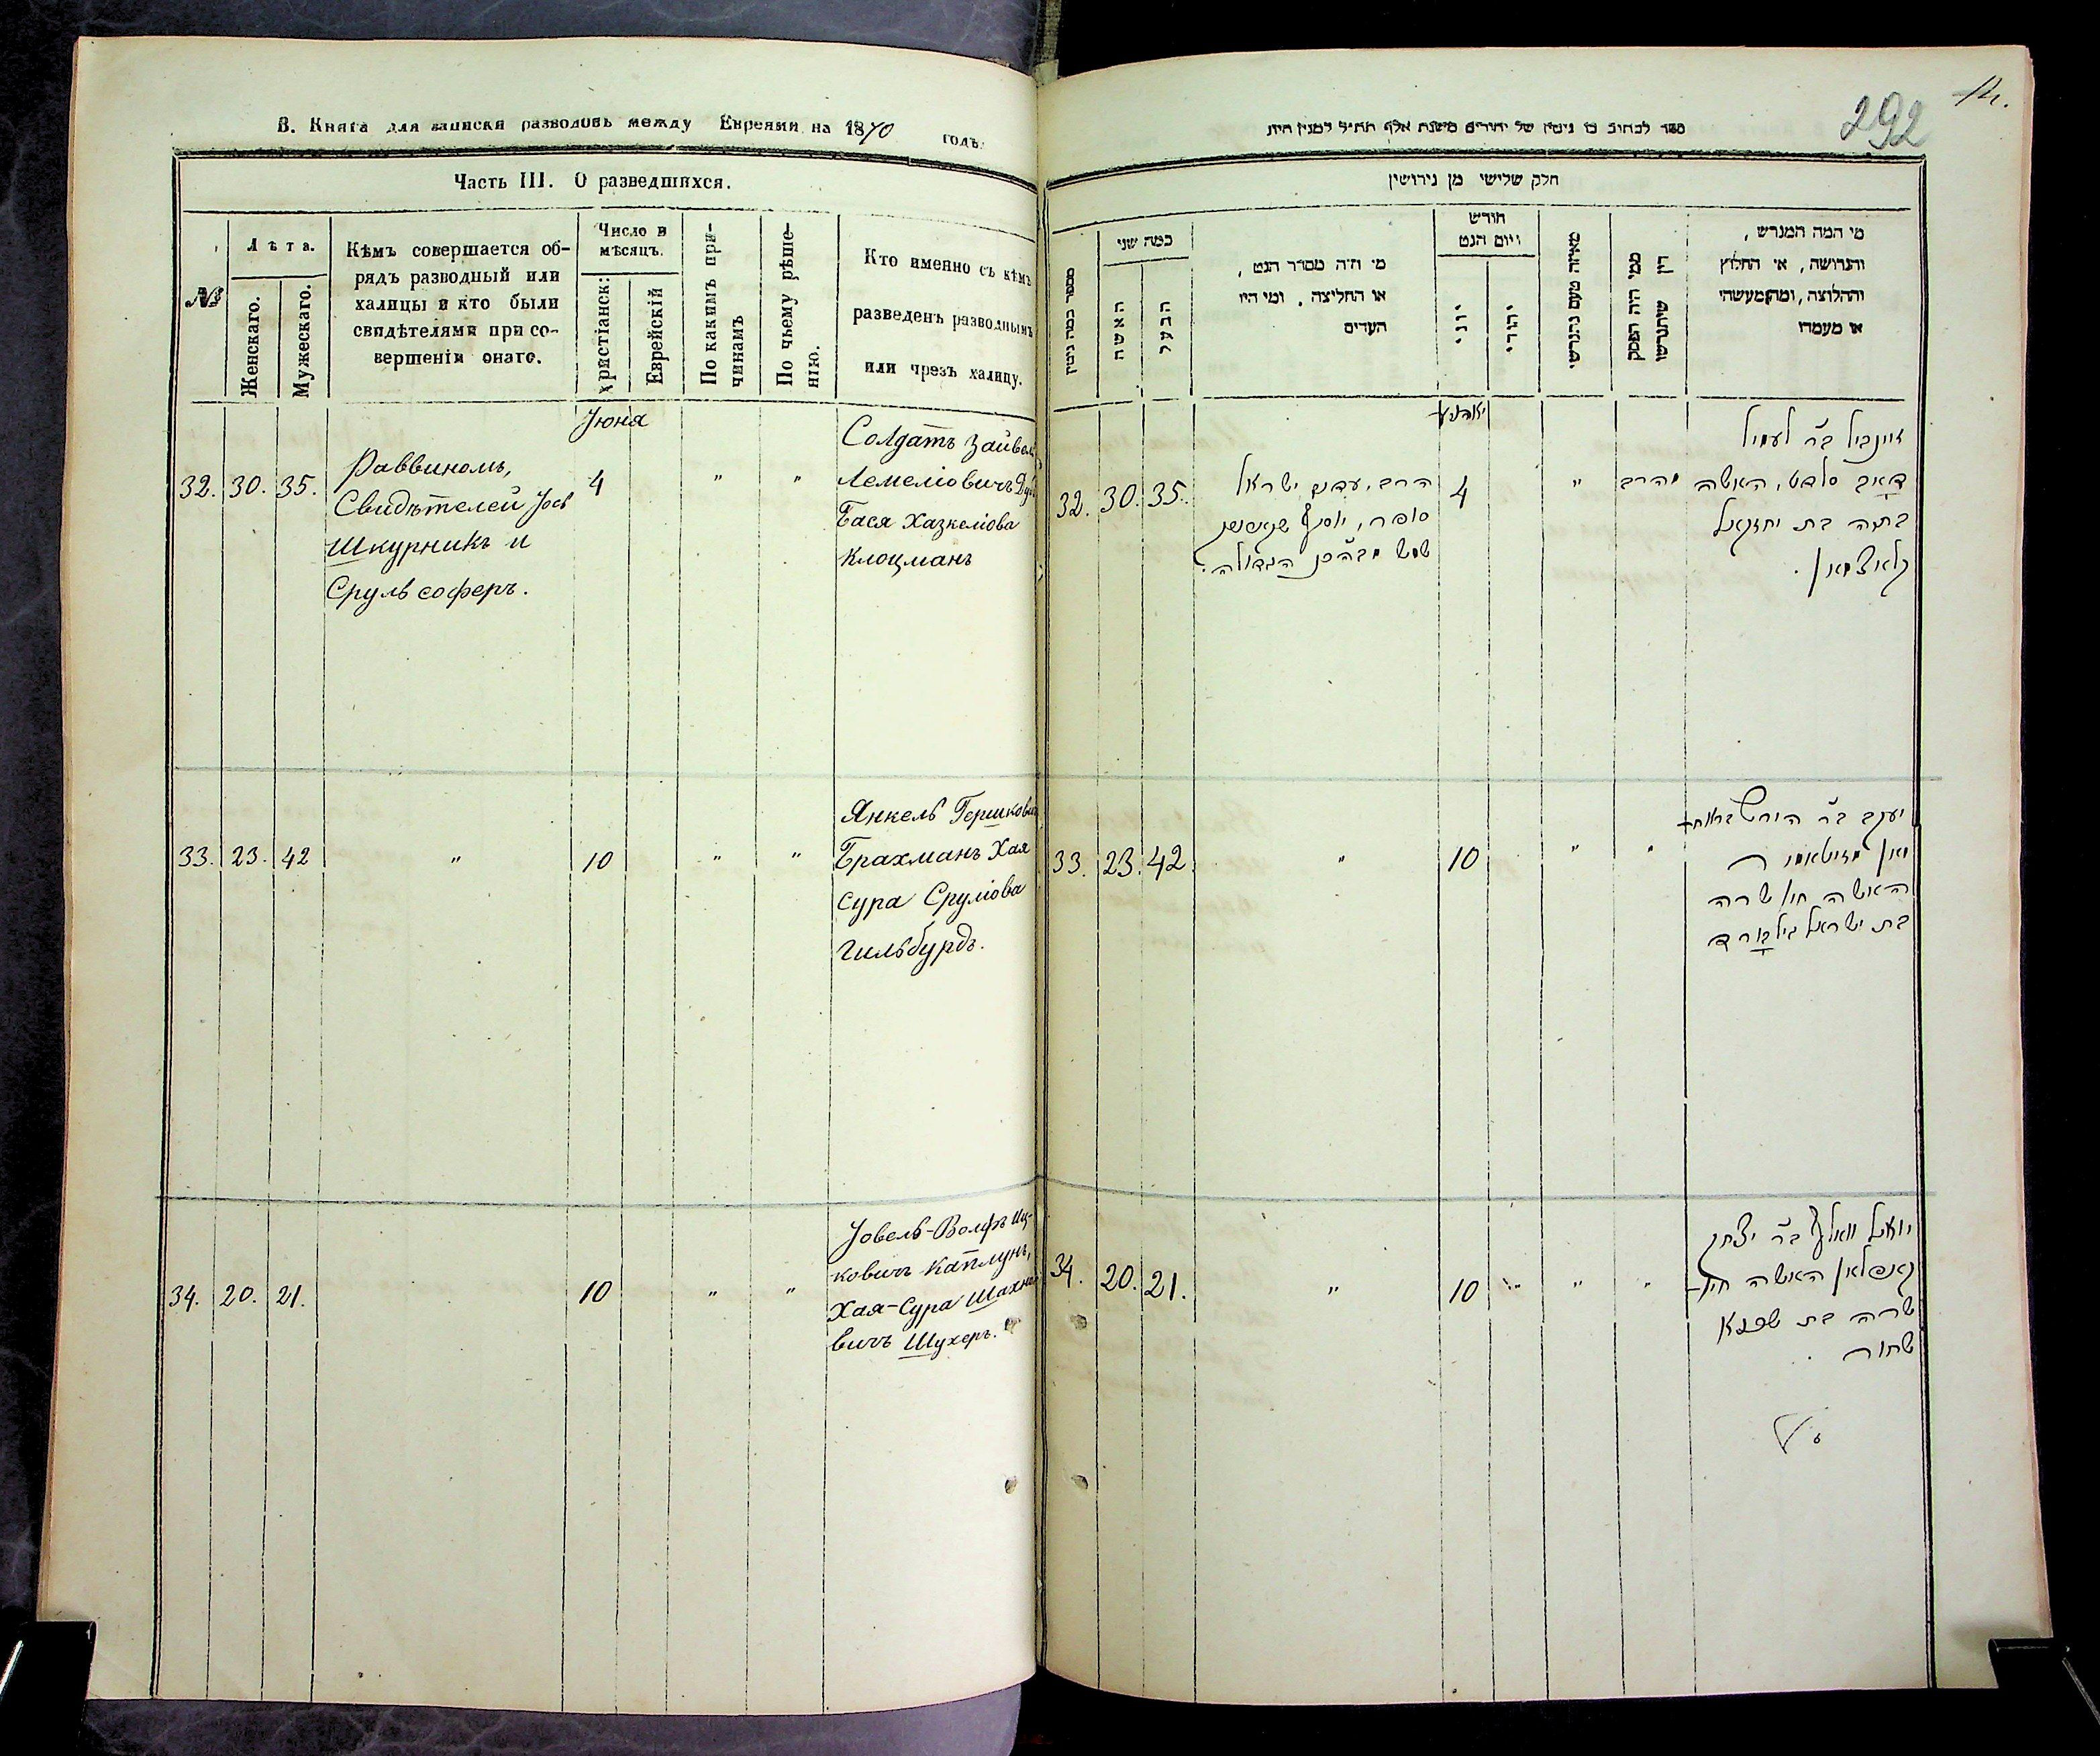 В. Книга для записки разводовъ между Евреями на 1870 годъ.
Часть III. О разведшихся.
№
Лѣта.
Женскаго.
Мужескаго.
Кѣмъ совершается об-
рядъ разводный или
халицы и кто были
свидѣтелями при со-
вершеніи онаго.
Число и
мѣсяцъ.
Христіанск:
Еврейскій
По какимъ при-
чинамъ
По чьему рѣше-
нію.
Кто именно съ кѣмъ
разведенъ разводнымъ
или чрезъ халицу.
Іюня
32. 30. 35.
Раввиномъ,
Свидѣтелей Іос
Шкурникъ и
Сруль соферъ.
4 " "
Солдатъ Зайвел
Лемеліовичъ
Бася Хазкеліова
Клоцманъ
33. 23. 42 " 10 " "
Янкель Гершкови
Брахманъ Хая
Сура Сруліова
Гильбурдъ.
34. 20. 21. 10 " "
Іовель-Вольфъ Иц-
ковичъ Каплунъ,
Хая-Сура Шахно
вичъ Шухеръ.
292
ספר לכתוב בו גיטין של יהודים משנת אלף תת״ל למנין הזה
חלק שלישי מן גירושין
מספר כמה גיטין
כמה שני
האשה
הבעל
מי היה מסדר הגט,
או החליצה, ומי היו
העדים
חודש
ויום הגט
יוני
יהודי
מאיזה טעם נתגרשו
ממי היה הפסק
דין שיתגרשו
מי המה המגרש,
והגרושה, או החלוץ
והחלוצה, ומה מעשהו
או מעמדו
32. 30. 35.
הרב, עדים ישראל
סופר, יוסף
שמש מבה״כ הגדולה.
4 " הרב
זיינביל ב״ר לעמיל
סלבט, האשה
בתיה בת יחזקאל
קלאצמאן.
33. 23. 42. " 10 " "
יעקב ב״ר הירש בראח-
מאן
האשה חי׳ שרה
בת ישראל גילבורד
34. 20. 21. " 10 " " "
יועיל וואלף ב״ר יצחק
קאפלאן האשה חי׳-
שרה בת שכנא
שחור.